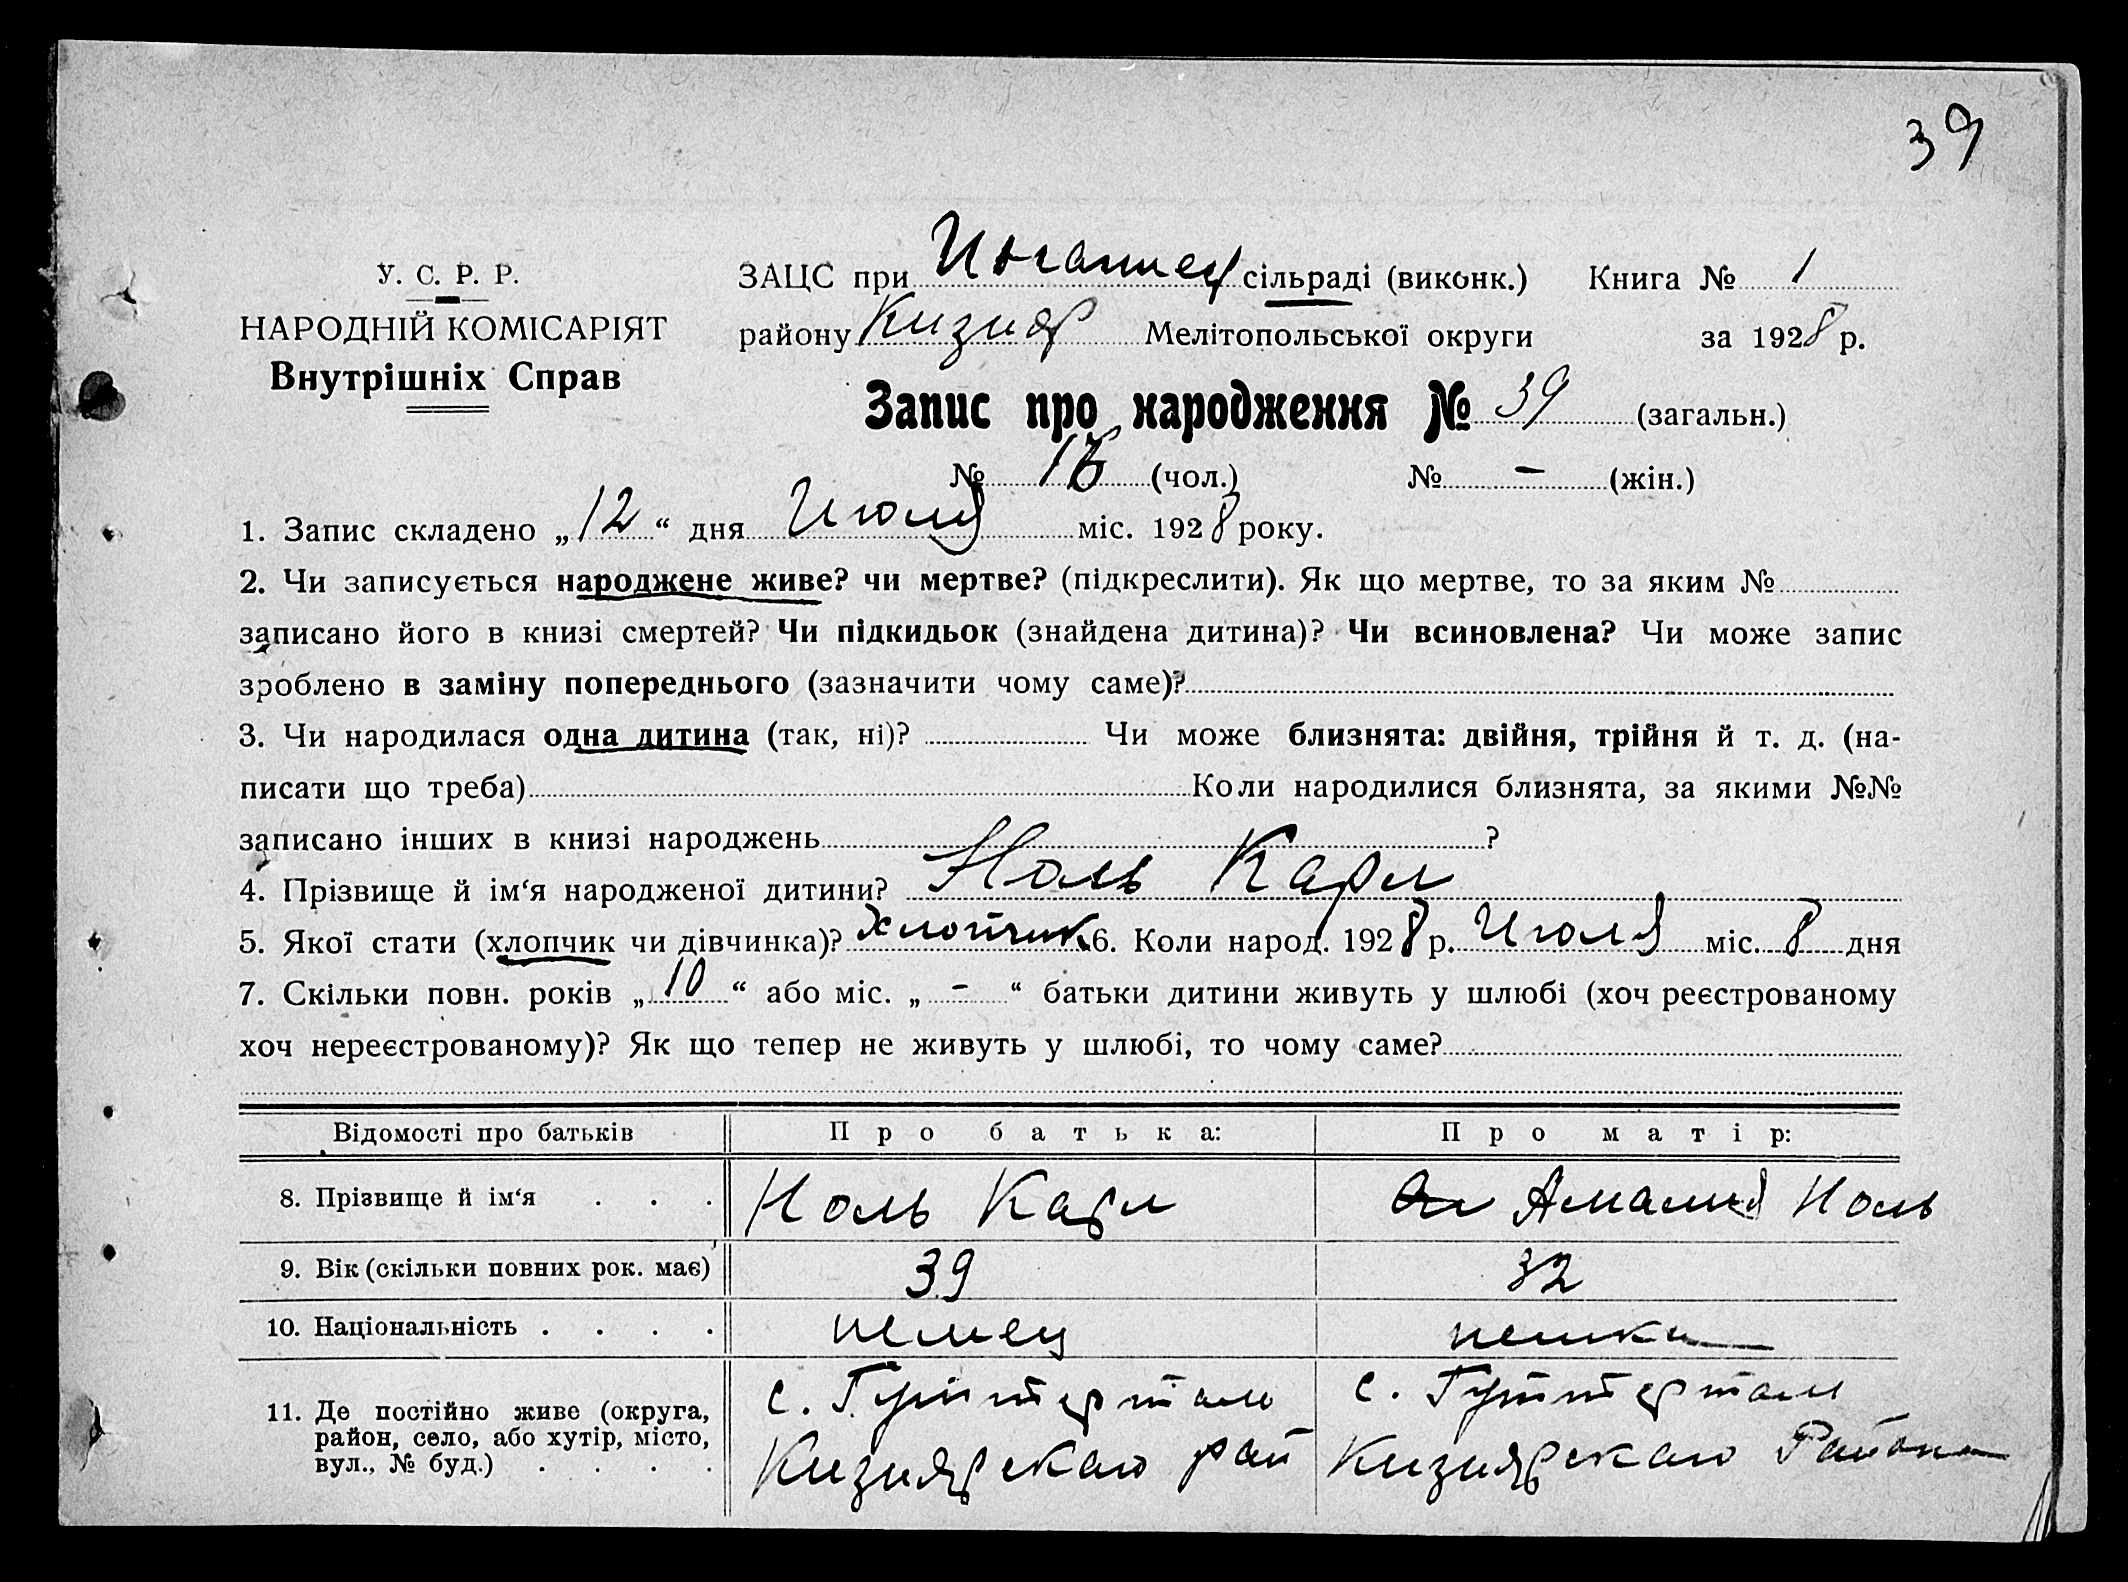 39
У. С. Р. Р.
НАРОДНІЙ КОМІСАРІЯТ
Внутрішніх Справ
ЗАЦС при сільраді (виконк.) Книга № 1
району Кизияр Мелітопольської округи за 1928 р.
Запис про народження № 39 (загальн.)
№ (чол.) № - (жін.)
1. Запис складено „12“ дня Июля міс. 1928 року.
2. Чи записується народжене живе? чи мертве? (підкреслити). Як що мертве, то за яким №
записано його в книзі смертей? Чи підкидьок (знайдена дитина)? Чи всиновлена? Чи може запис
зроблено в заміну попереднього (зазначити чому саме)?
3. Чи народилася одна дитина (так, ні)? Чи може близнята: двійня, трійня й т. д. (на-
писати що треба) Коли народилися близнята, за якими №№
записано інших в книзі народжень ?
4. Прізвище й ім‘я народженої дитини? Ноль Карл
5. Якої стати (хлопчик чи дівчинка)? хлопчик 6. Коли народ. 1928 р. Июля міс. 8 дня
7. Скільки повн. років „10“ або міс. „-“ батьки дитини живуть у шлюбі (хоч реєстрованому
хоч нереєстрованому)? Як що тепер не живуть у шлюбі, то чому саме?
Відомості про батьків Про батька: Про матір:
8. Прізвище й ім‘я . . . Ноль Карл Амалия Ноль
9. Вік (скільки повних рок. має) 39 32
10. Національність . . . . немец немка
11. Де постійно живе (округа,
район, село, або хутір, місто,
вул., № буд.) . . . .
с. Гуттерталь
Кизиярскаго рай
с. Гуттерталь
Кизиярскаго Района